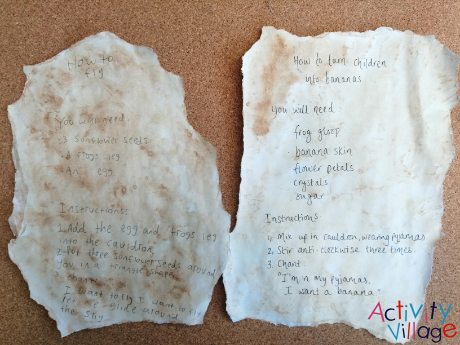 How to
fly
You will need
sunflower seeds
frogs leg
An egg
Instructions
1. Add the egg and frogs leg
into the cauldron
2. Put three sunflower seeds around
you in a triangle shape
I want to fly I want to
glide around
the sky
How to turn children
into bananas
You will need
frog gloop
banana skin
flower petals
crystals
sugar
Instructions
1. Mix up in cauldron, wearing pyjamas
2. Stir anti-clockwise three times
3. Chant
"I'm in my pyjamas
I want a banana"
Activity
Village